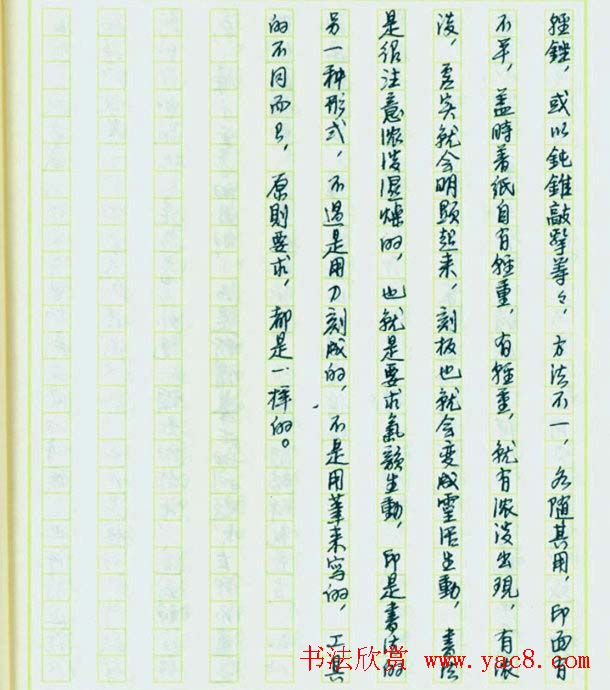 轻锉，或以鈍錐敲擊等々，方法不一，各随其用，印面有
不平，盖時着纸自有輕重，有輕重，就有浓淡出現，有浓
淡，虚实就会明顯起来，刻板也就会变成靈活生動，書法
是很注意浓淡湿燥的，也就是要求氣韻生動，印是書法的
另一种形式，不過是用刀刻成的，不是用筆来写的，工具
的不同而已，原則要求，都是一样的。
书法欣赏 www.yac8.com